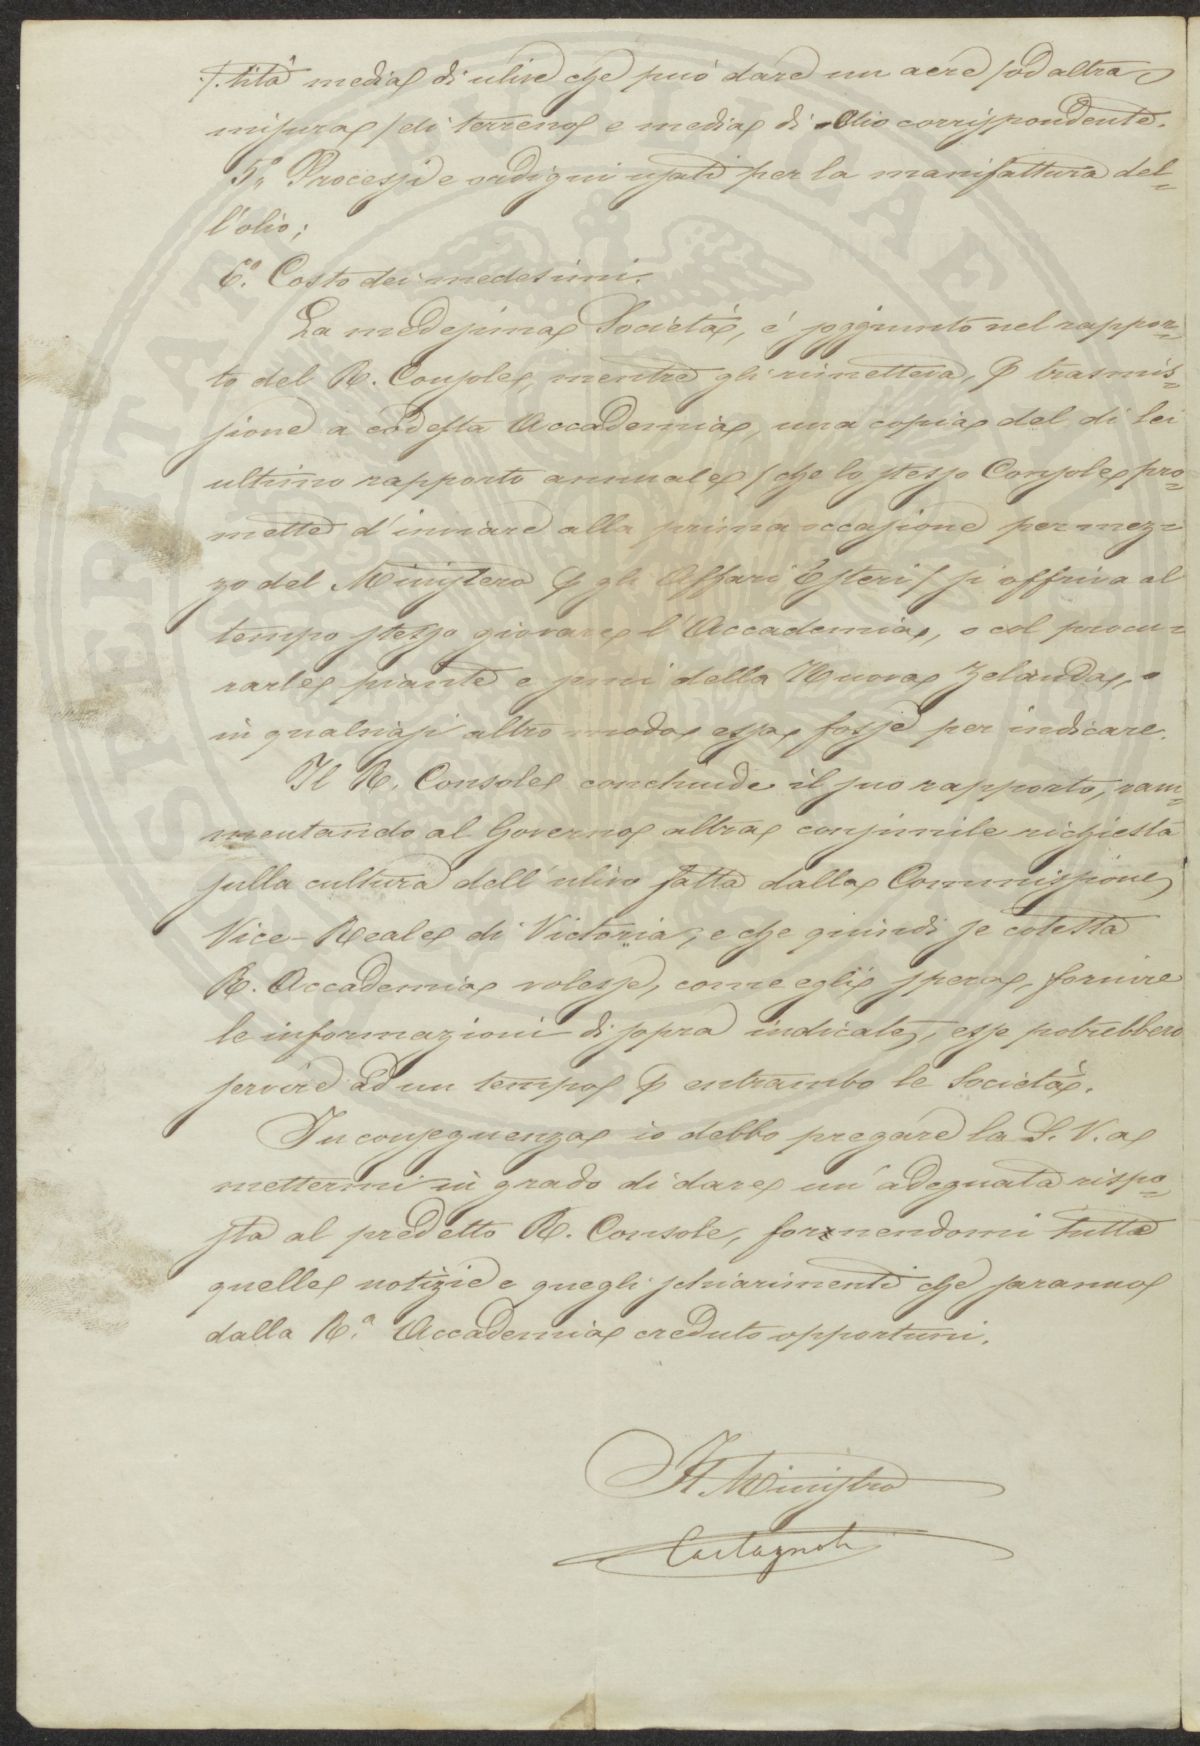 ./. tità media di ulive che può dare un acre (od altra
misura) di terreno e media di Olio corrispondente.
5º Processi e ordigni usati per la manifattura del=
l'olio;
6.º Costo dei medesimi.
La medesima Società, è soggiunto nel rappor=
to del R. Console, mentre gli rimetteva, p trasmis=
sione a codesta Accademia, una copia del di lei
ultimo rapporto annuale (che lo stesso Console pro=
mette d'inviare alla prima occasione per mez=
zo del Ministero p gli Affari Esteri) si offriva al
tempo stesso giovare l'Accademia, o col procu=
rarle piante e semi della Nuova Zelanda, o
in qualsiasi altro modo essa fosse per indicare.
Il R. Console conchiude il suo rapporto, ram=
mentando al Governo altra consimile richiesta
sulla cultura dell'ulivo fatta dalla Commissione
Vice-Reale di Victoria, e che quindi se cotesta
R. Accademia volesse, come egli spera, fornire
le informazioni di sopra indicate, esse potrebbero
servire ad un tempo p entrambo le Società.
In conseguenza io debbo pregare la S. V. a
mettermi in grado di dare un'adeguata rispo=
sta al predetto R. Console, fornendomi tutte
quelle notizie e quegli schiarimenti che saranno
dalla R.ª Accademia creduto opportuni.
Il Ministro
Castagnola
SPERITATI PUBLICAE